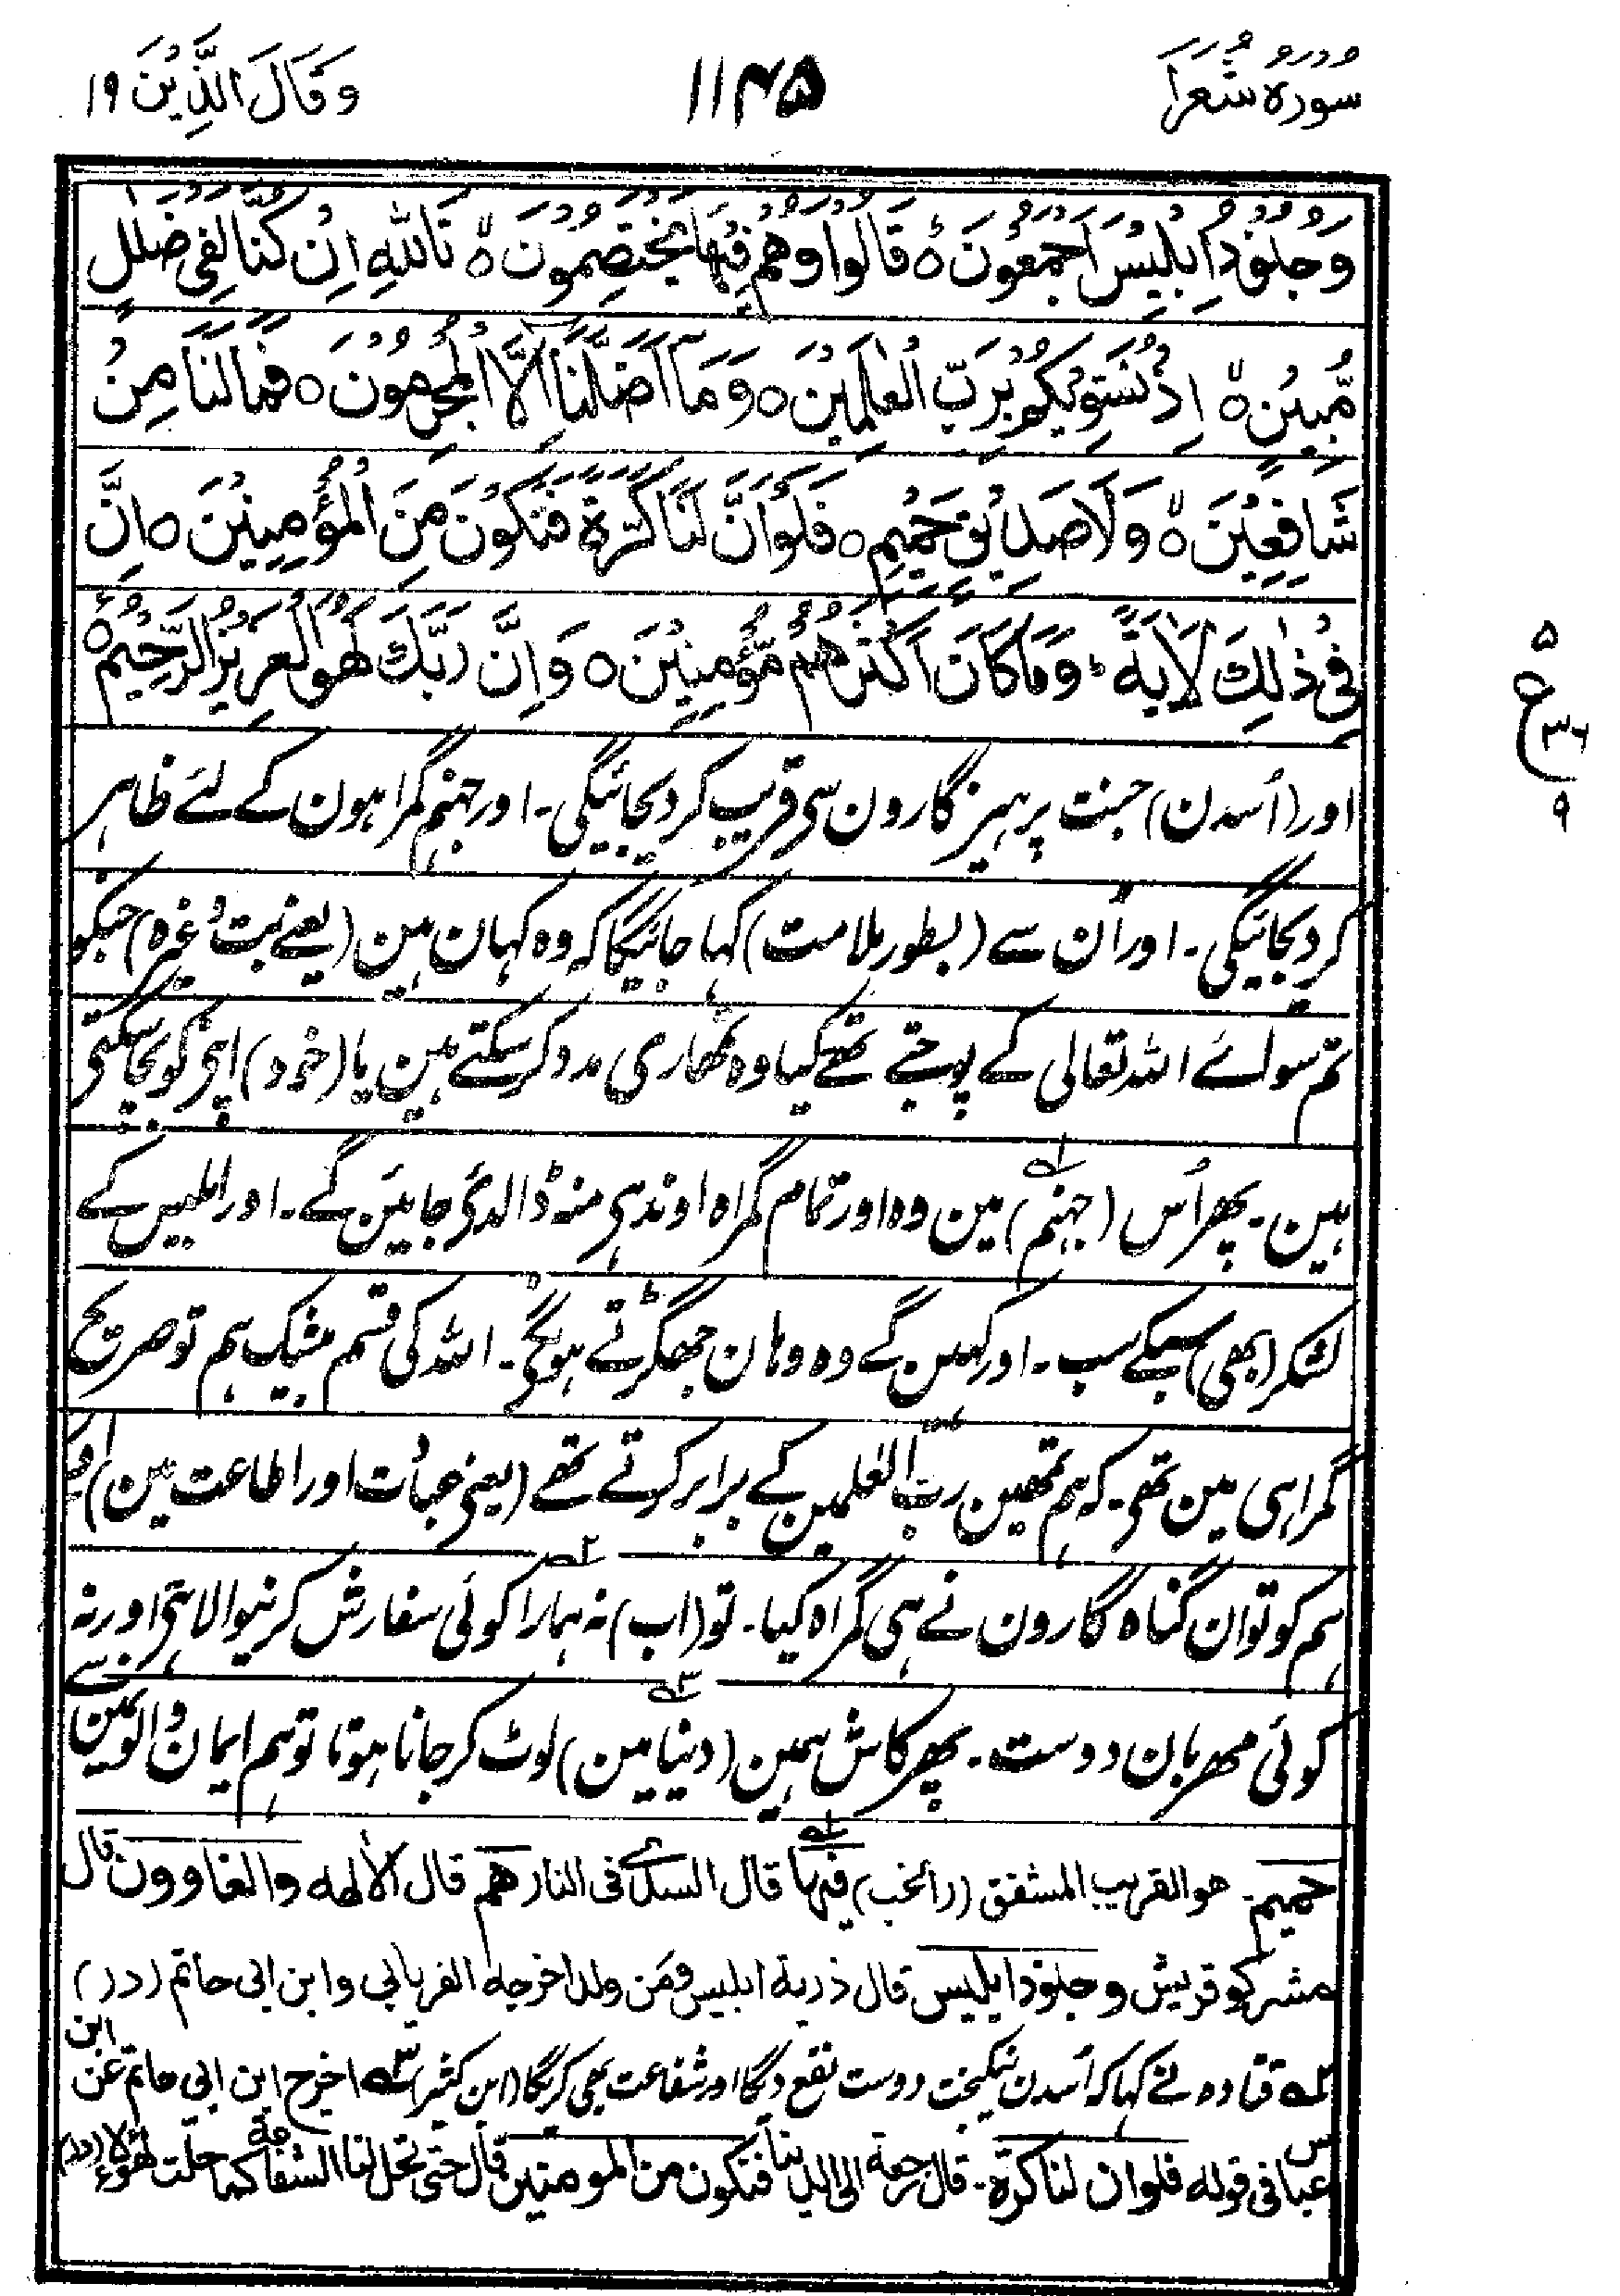 سورة شعرا
۱۱۴۵
وقال الذين ۱۹
وَجُنُوْدُ اِبْلِيْسَ اَجْمَعُوْنَ ۝ قَالُوْا وَهُمْ فِيْهَا يَخْتَصِمُوْنَ ۝ تَاللّٰهِ اِنْ كُنَّا لَفِيْ ضَلٰلٍ
مُّبِيْنٍ ۝ اِذْ نُسَوِّيْكُمْ بِرَبِّ الْعٰلَمِيْنَ ۝ وَمَآ اَضَلَّنَآ اِلَّا الْمُجْرِمُوْنَ ۝ فَمَا لَنَا مِنْ
شَافِعِيْنَ ۝ وَلَا صَدِيْقٍ حَمِيْمٍ ۝ فَلَوْ اَنَّ لَنَا كَرَّةً فَنَكُوْنَ مِنَ الْمُؤْمِنِيْنَ ۝ اِنَّ
فِيْ ذٰلِكَ لَاٰيَةً ؕ وَمَا كَانَ اَكْثَرُهُمْ مُّؤْمِنِيْنَ ۝ وَاِنَّ رَبَّكَ لَهُوَ الْعَزِيْزُ الرَّحِيْمُ ۝
۵
ع ۳۶
۹
اور (اُسدن) جنت پرہیزگارون سی قریب کر دیجائیگی۔ اور جہنم گمراہون کے لئے ظاہر
کر دیجائیگی۔ اور اُن سے (بطور ملامت) کہا جائیگا کہ وہ کہان ہین (یعنے بت وغیرہ) جنکو
تم سوائے اللہ تعالی کے پوجتے تھے کیا وہ تمھاری مدد کر سکتے ہین یا (خود) اپنی کو بچا سکتی
ہین۔ پھر اُس (جہنم) مین وہ اور تمام گمراہ اوندہی منہ ڈالدئی جائین گے۔ اور ابلیس کے
لشکر (بھی) سبکے سب۔ اور کہین گے وہ وہان جھگڑتے ہونگے۔ اللہ کی قسم بیشک ہم تو صریح
گمراہی مین تھی۔ کہ ہم تمھین رب العٰلمین کے برابر کرتے تھے (یعنی عبادت اور اطاعت مین) اور
ہم کو تو ان گناہ گارون نے ہی گمراہ کیا۔ تو (اب) نہ ہمارا کوئی سفارش کرنیوالا ہی اور نہ
کوئی مھربان دوست۔ پھر کاش ہمین (دنیا مین) لوٹ کر جانا ہوتا تو ہم ایمان والون مین سے
حمیم۔ هو القریب المشفق (راغب) ۱ فیها قال السدی فی النار هم قال الاٰلهه والغاوون قال
مشرکو قریش وجنود ابلیس قال ذریة ابلیس ومن ولد اخرجه الفریابی وابن ابی حاتم (در)
۲ قتادہ نے کہا کہ اُسدن نیکبخت دوست نفع دیگا اور شفاعت بھی کریگا (ابن کثیر) ۳ اخرج ابن ابی حاتم عن ابن
عباس فی قوله فلو ان لنا کرة۔ قال رجعة الی الدنیا فنکون من المومنین قال حتی تحل لنا الشفاعة کما حلت لهؤلاء (در)